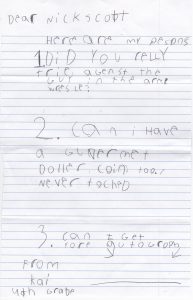 Dear Nick scott
Here are my pecons
1 DiD you relly
trip agenst the
Guy in the arm
wresle?
2. Can i have
a gupermet
Doller coin that
never toched
3. can I get
more autographs
From
kai
4th GraDe